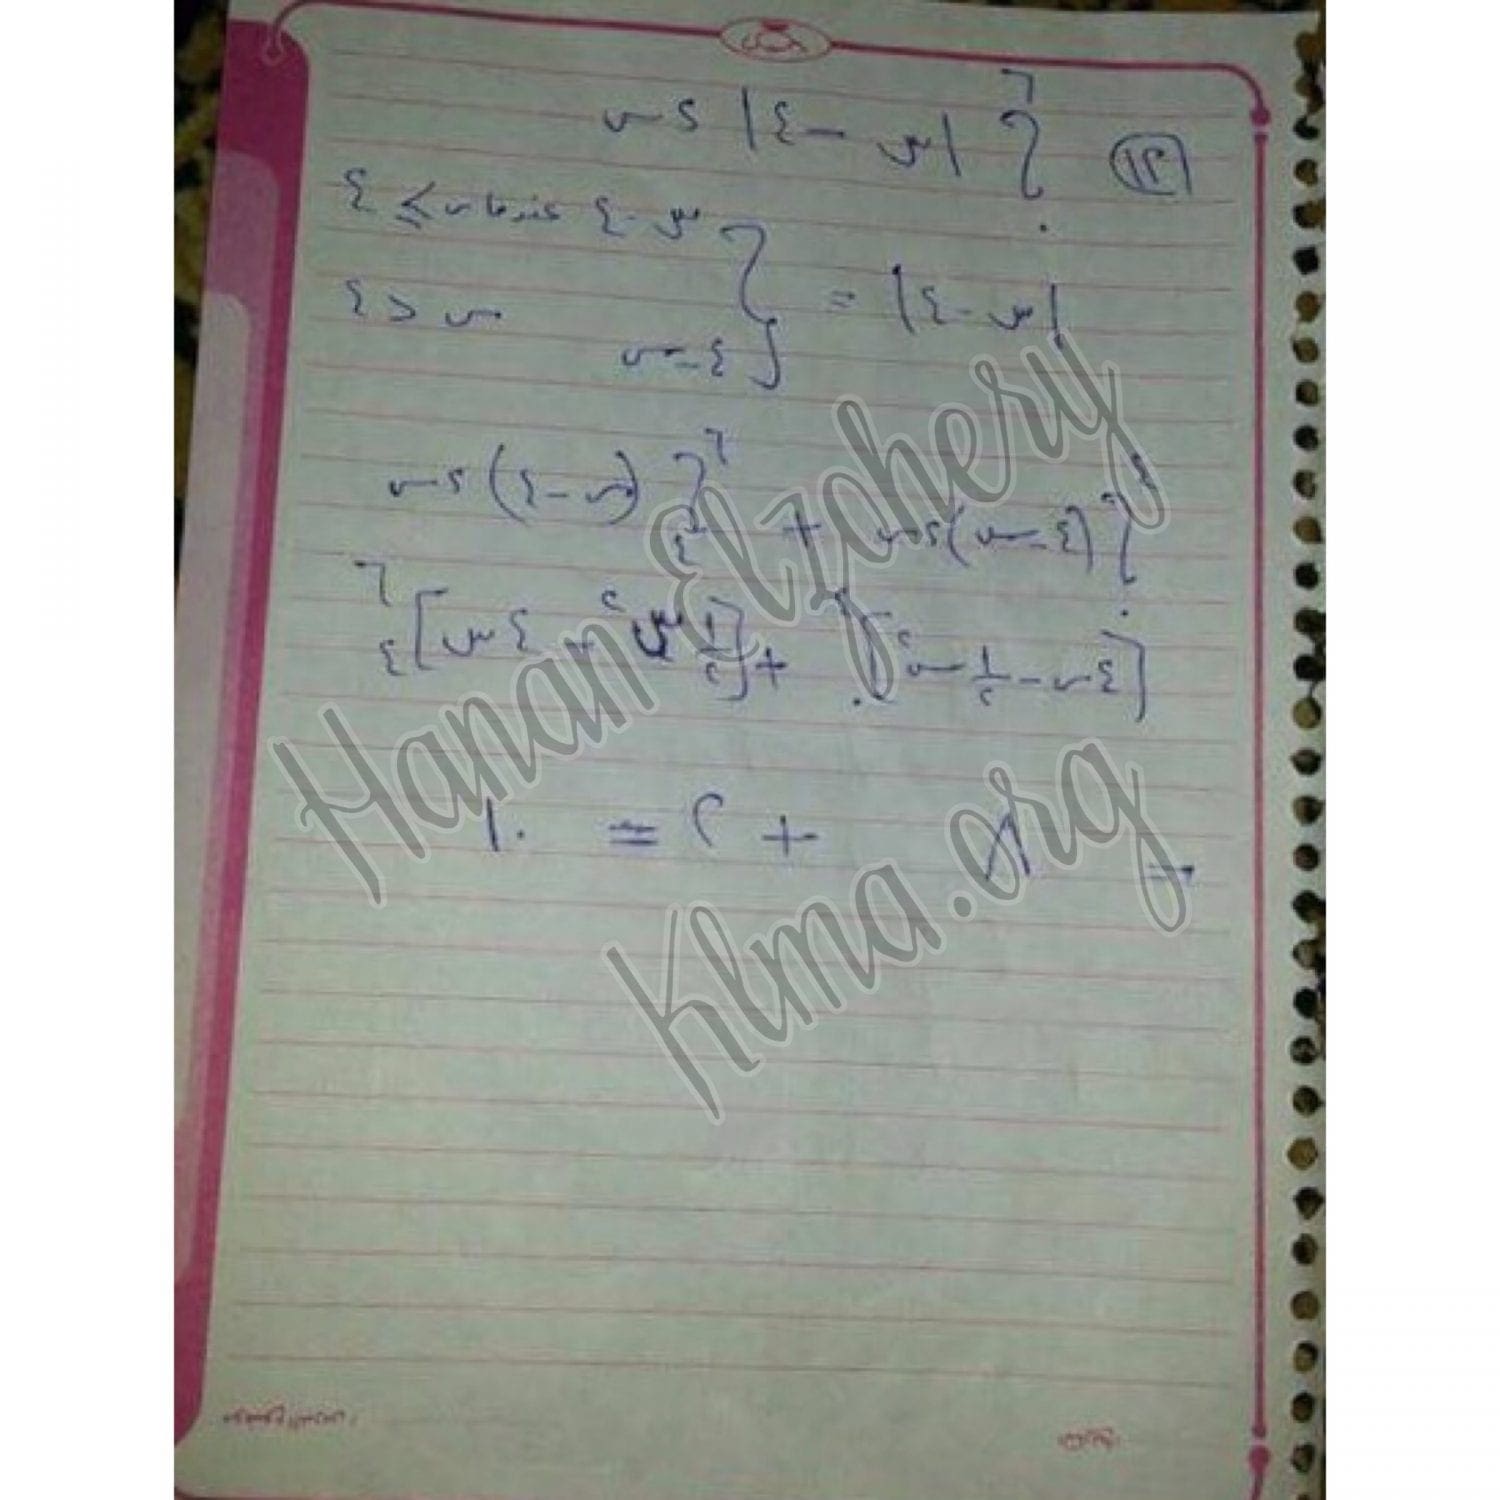 ١٣ ∫٠^٦ |س - ٤| ء س
س - ٤ عندما س ≥ ٤
|س - ٤| = {
٤ - س س < ٤
∫٠^٤ (٤ - س) ء س + ∫٤^٦ (س - ٤) ء س
[٤س - ١/٢ س٢]٠^٤ + [١/٢ س٢ - ٤س]٤^٦
= ٨ + ٢ = ١٠
Hanan Elzohery
Klma.org